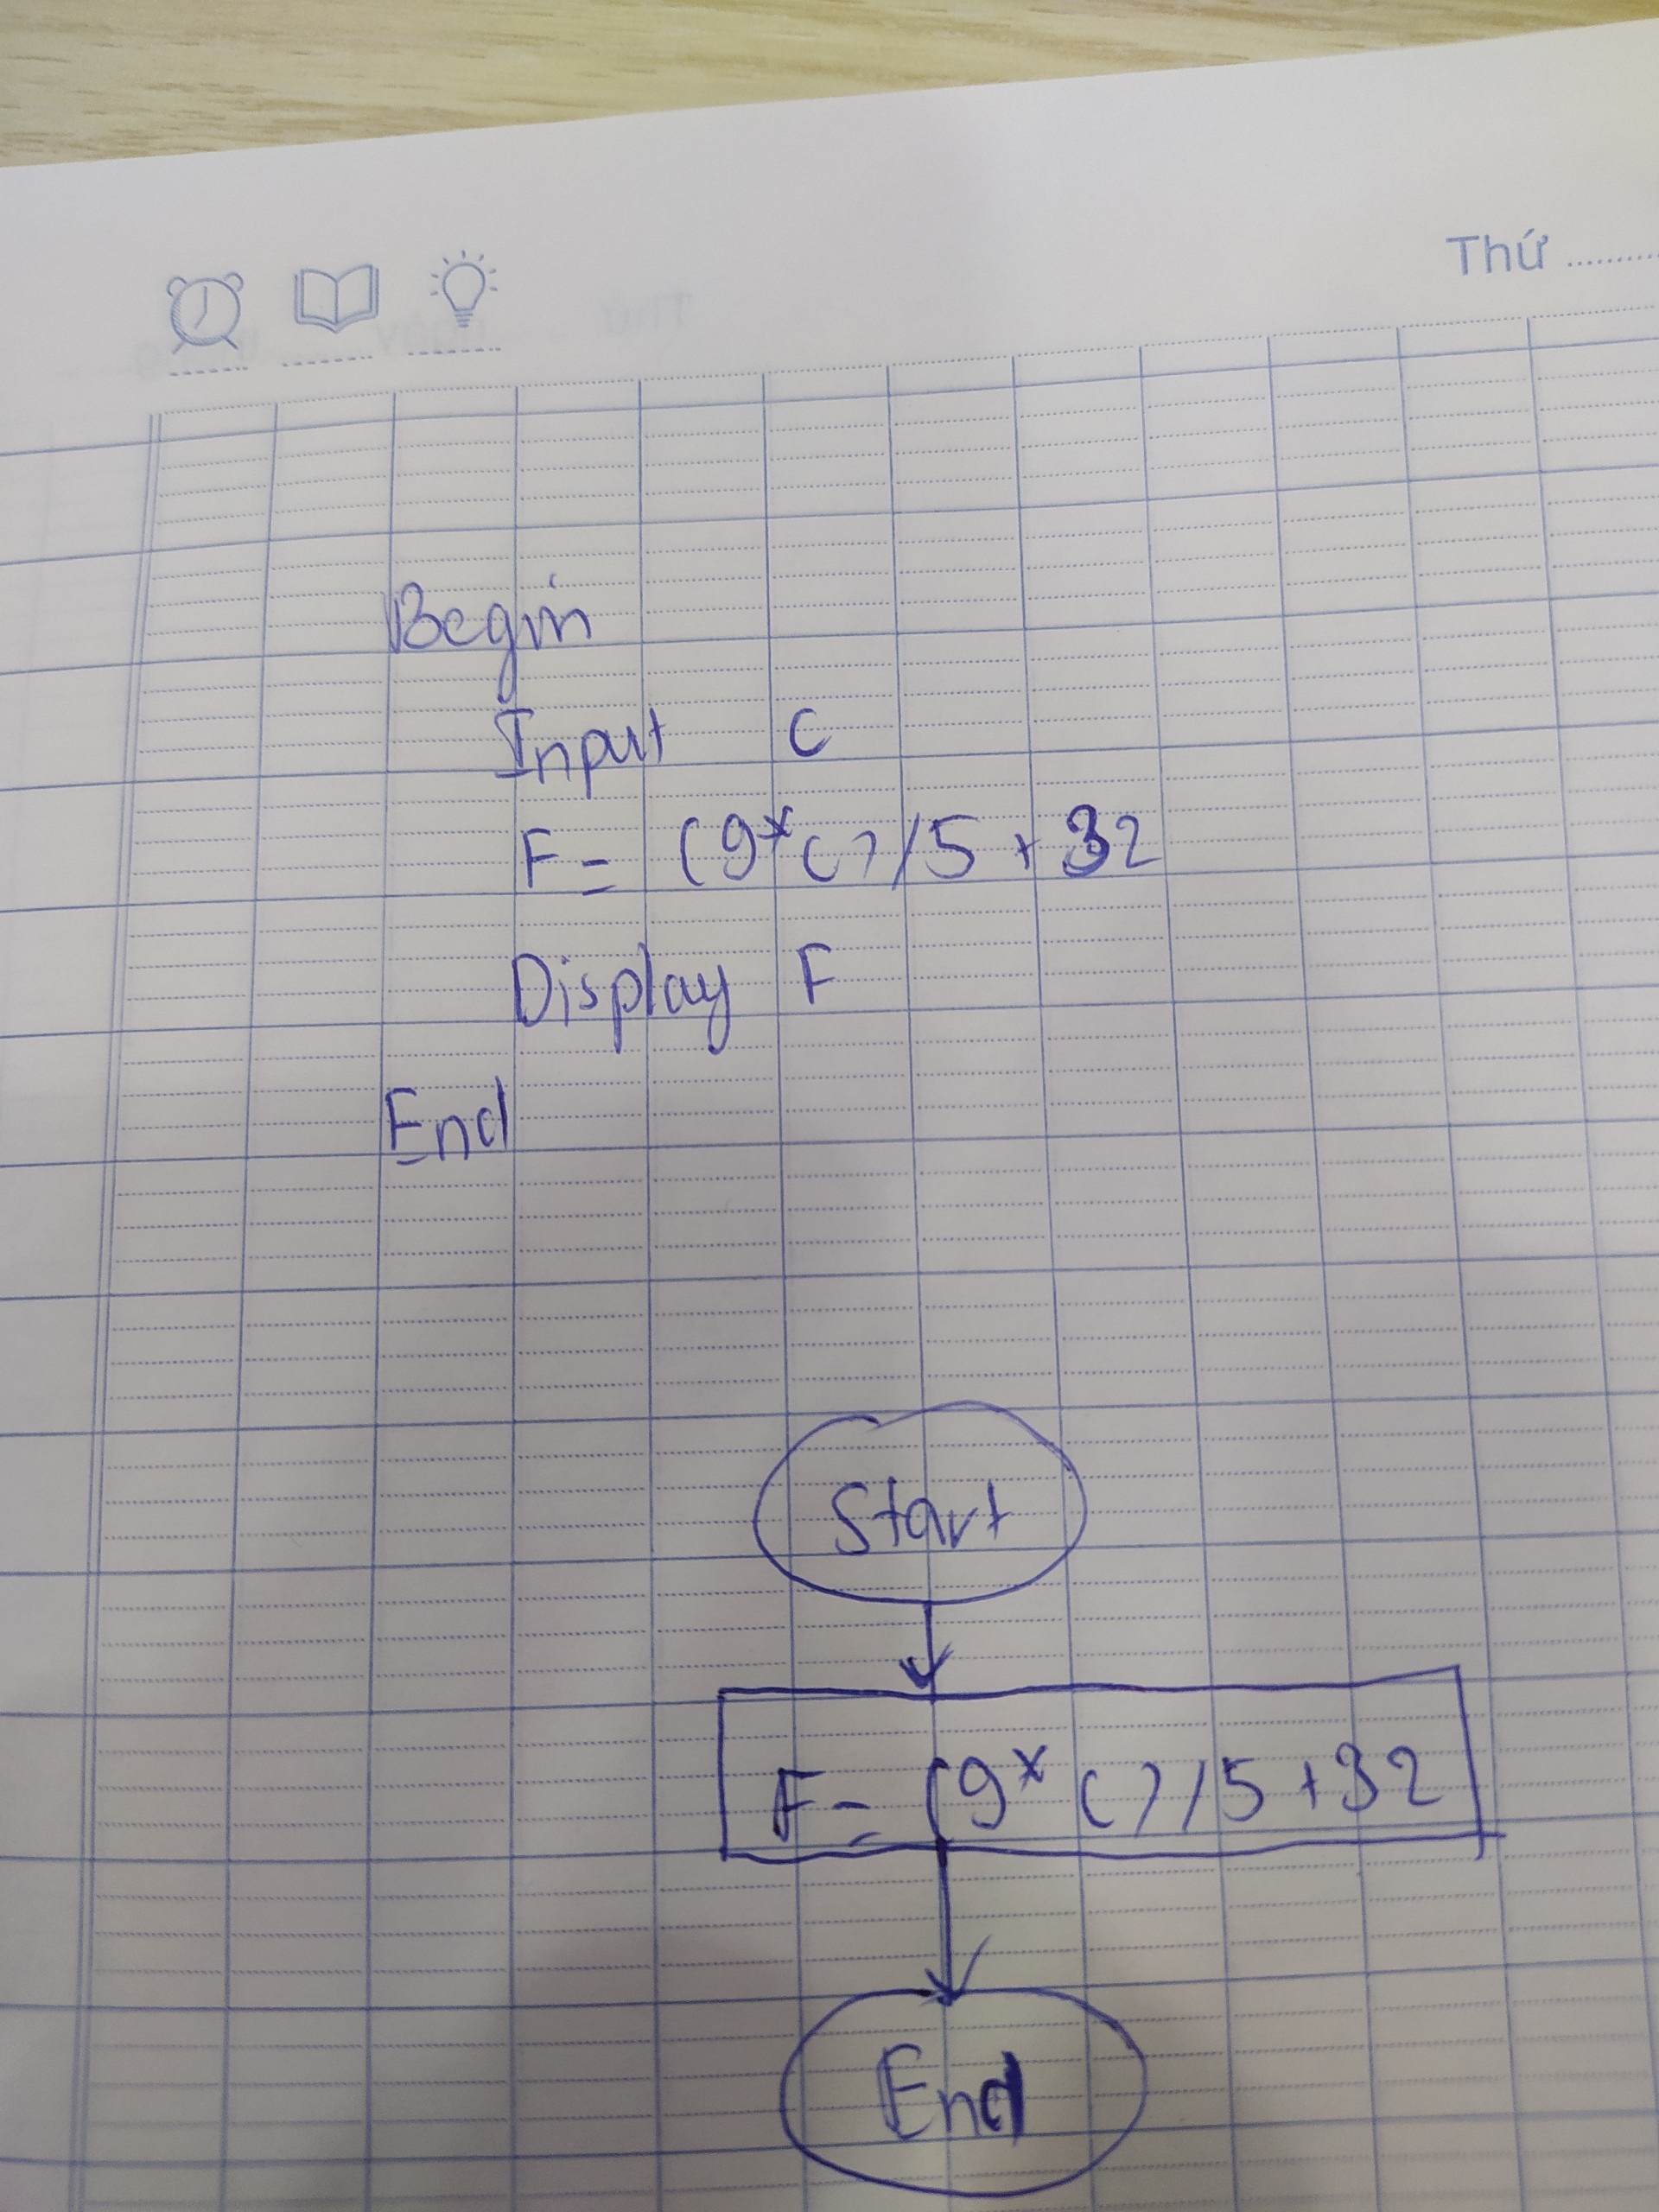 Thứ ..........
Begin
Input C
F = (9*C)/5 + 32
Display F
End
Start
F = (9*C)/5+32
End